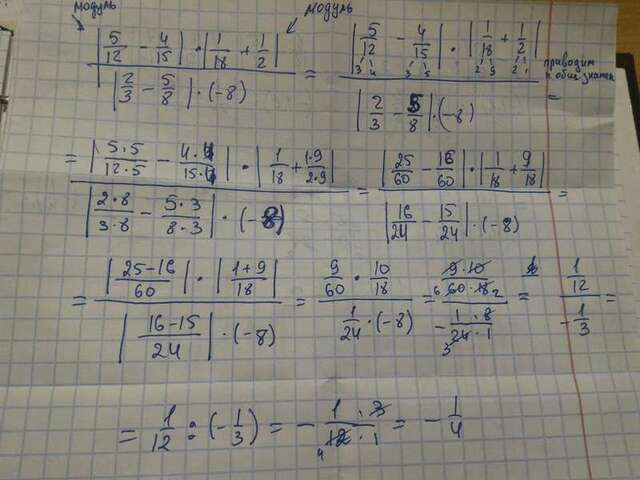 модуль модуль
|5/12 - 4/15| · |1/18 + 1/2| / |2/3 - 5/8| · (-8) = |5/12 - 4/15| · |1/18 + 1/2| / |2/3 - 5/8| · (-8) = приводим к общ. знамен.
= |5·5/12·5 - 4·4/15·4| · |1/18 + 1·9/2·9| / |2·8/3·8 - 5·3/8·3| · (-8) = |25/60 - 16/60| · |1/18 + 9/18| / |16/24 - 15/24| · (-8) =
= |25-16/60| · |1+9/18| / |16-15/24| · (-8) = 9/60 · 10/18 / 1/24 · (-8) = 9·10/60·18 / -1·8/24·1 = 1/12 / -1/3 =
= 1/12 : (-1/3) = - 1·3/12·1 = - 1/4